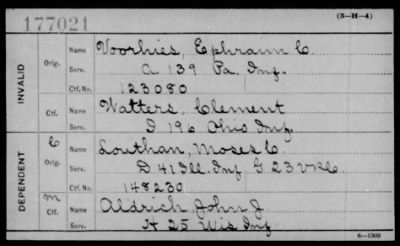 177021
(3—H—4)
INVALID
Orig.
Name Voorhies, Ephraim C.
Serv. A 139 Pa. Inf.
Ctf. No. 123080
Ctf.
Name Watters, Clement
Serv. I 196 Ohio Inf.
DEPENDENT
C
Orig.
Name Louthan, Moses C.
Serv. D 41 Ill. Inf. G 23 VRC
Ctf. No. 148230
M
Ctf.
Name Aldrich, John J
Serv. H 25 Wis Inf
6—1502